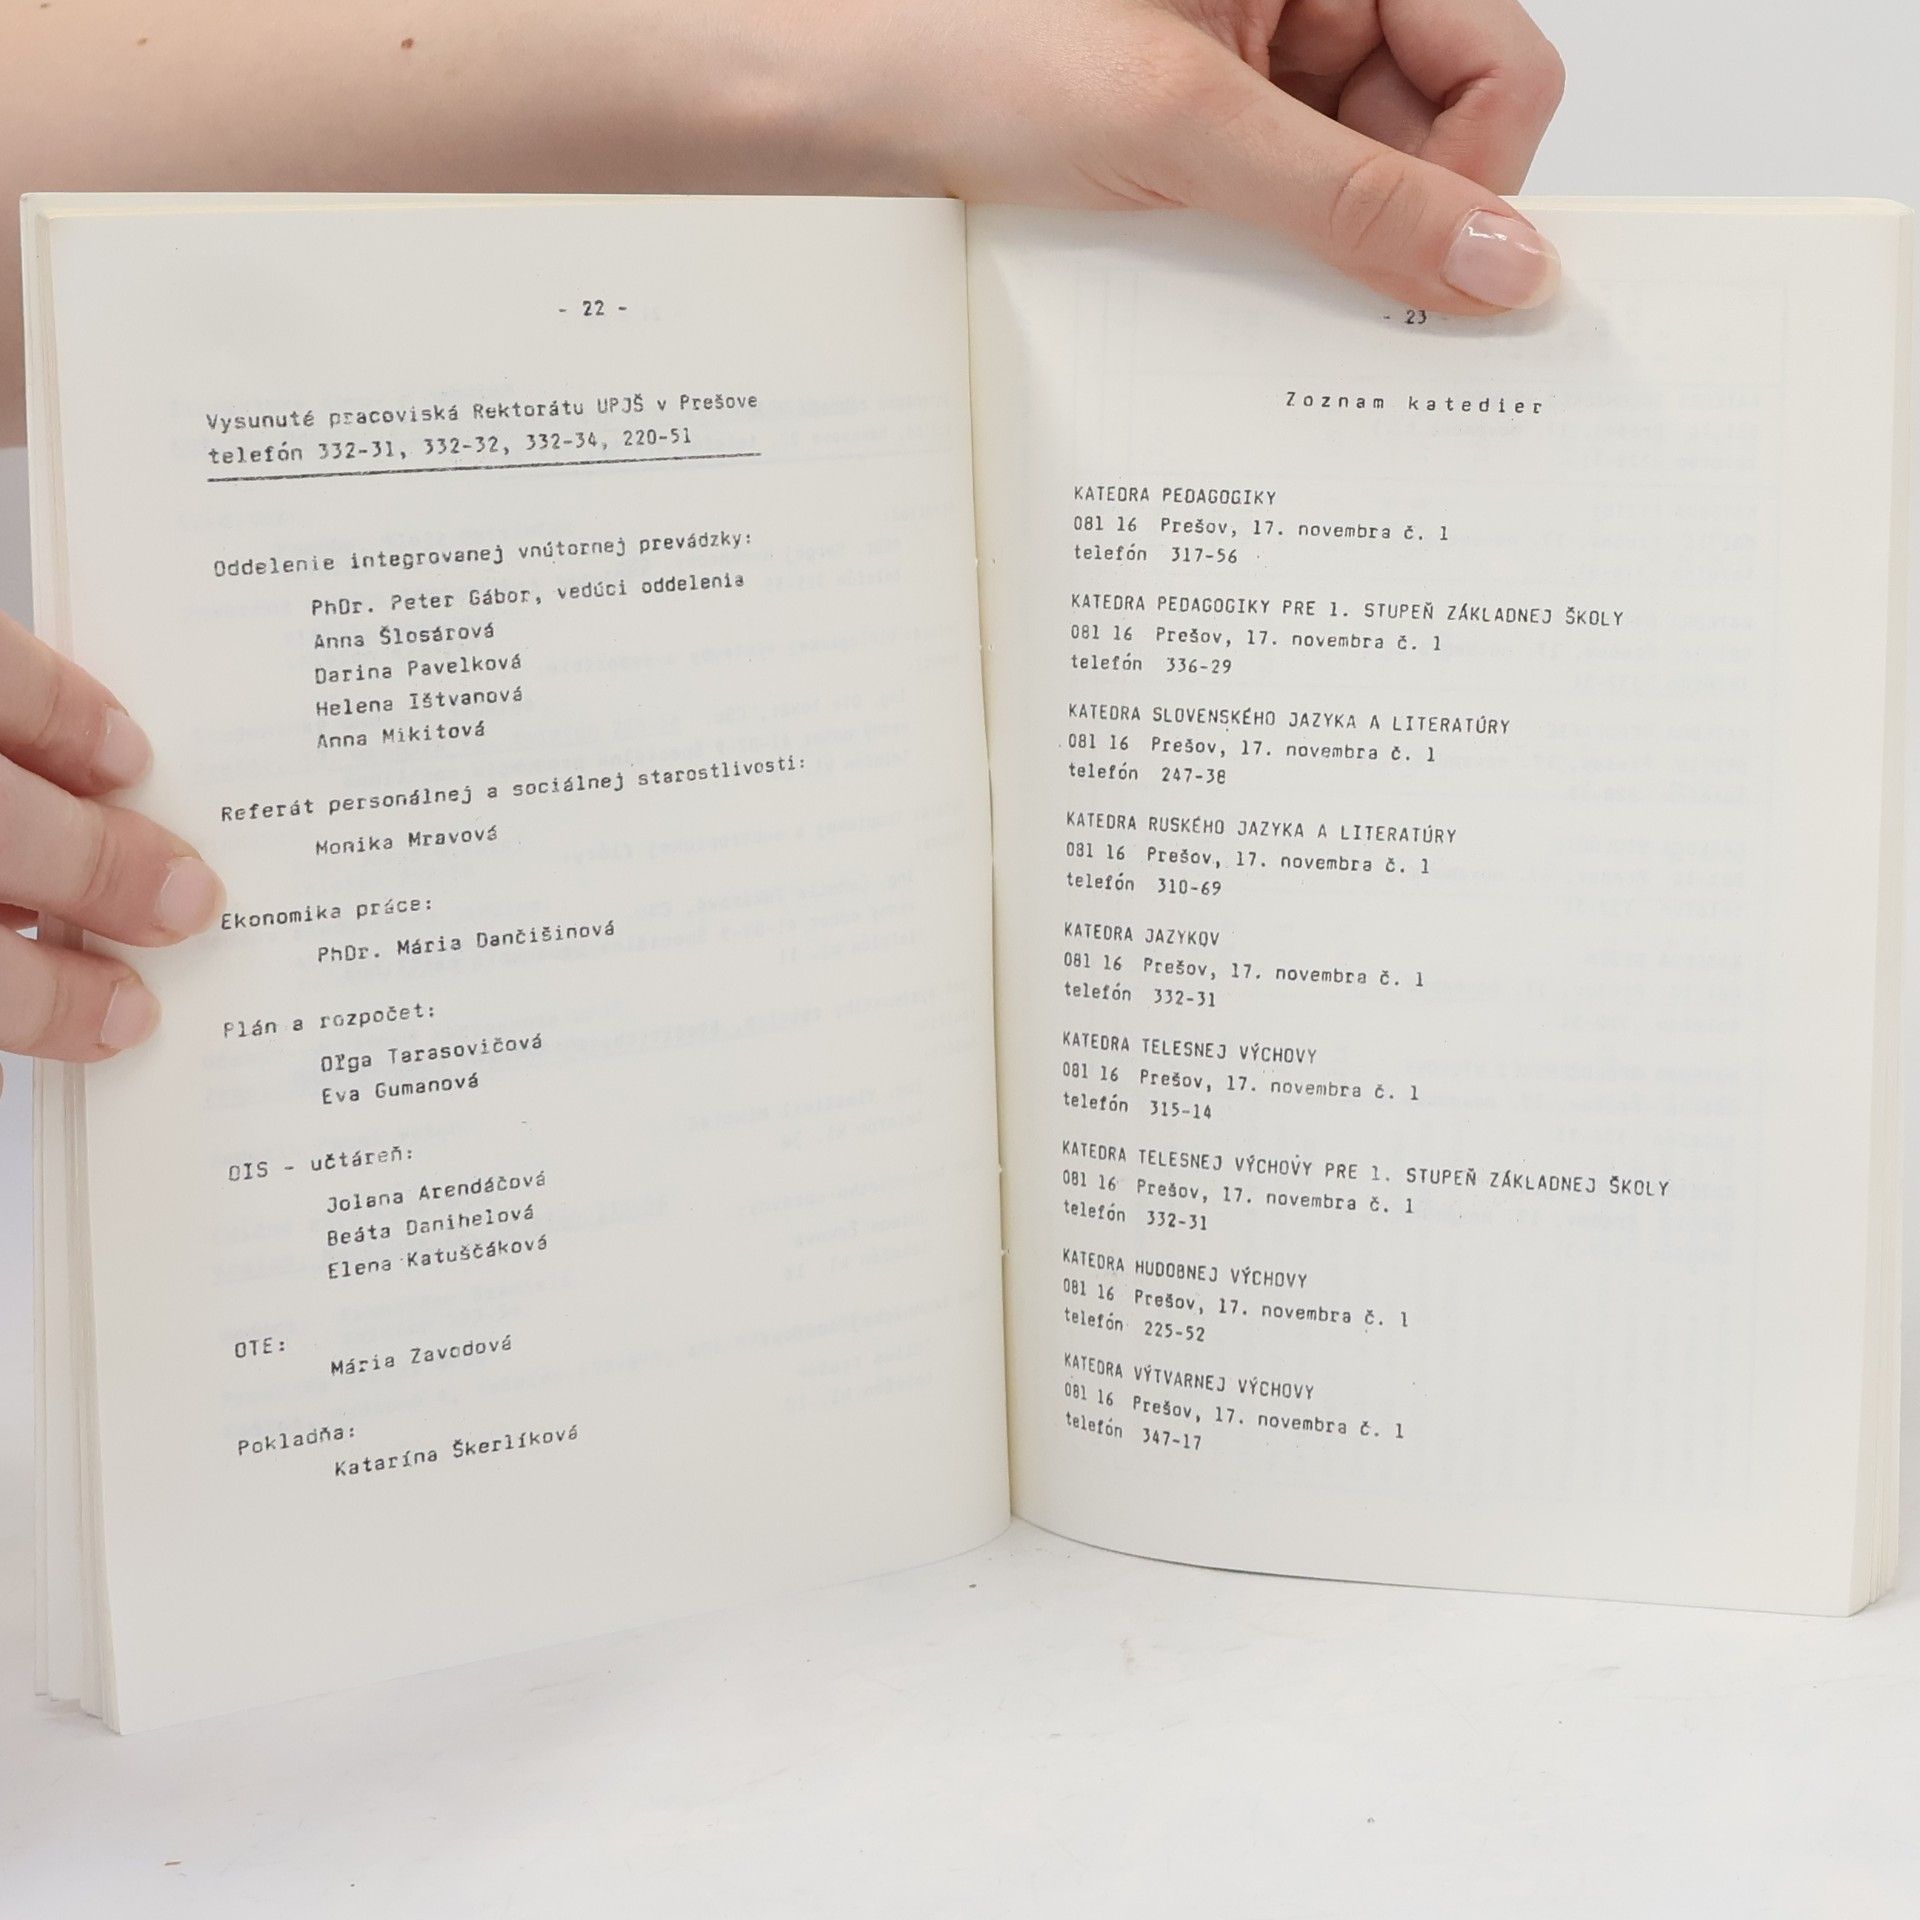 - 22 -
Vysunuté pracoviská Rektorátu UPJŠ v Prešove
telefón 332-31, 332-32, 332-34, 220-51
Oddelenie integrovanej vnútornej prevádzky:
PhDr. Peter Gábor, vedúci oddelenia
Anna Šlosárová
Darina Pavelková
Helena Ištvanová
Anna Mikitová
Referát personálnej a sociálnej starostlivosti:
Monika Mravová
Ekonomika práce:
PhDr. Mária Dančišinová
Plán a rozpočet:
Oľga Tarasovičová
Eva Gumanová
OIS - učtáreň:
Jolana Arendáčová
Beáta Danihelová
Elena Katuščáková
OTE:
Mária Zavodová
Pokladňa:
Katarína Škerlíková
- 23 -
Zoznam katedier
KATEDRA PEDAGOGIKY
081 16 Prešov, 17. novembra č. 1
telefón 317-56
KATEDRA PEDAGOGIKY PRE 1. STUPEŇ ZÁKLADNEJ ŠKOLY
081 16 Prešov, 17. novembra č. 1
telefón 336-29
KATEDRA SLOVENSKÉHO JAZYKA A LITERATÚRY
081 16 Prešov, 17. novembra č. 1
telefón 247-38
KATEDRA RUSKÉHO JAZYKA A LITERATÚRY
081 16 Prešov, 17. novembra č. 1
telefón 310-69
KATEDRA JAZYKOV
081 16 Prešov, 17. novembra č. 1
telefón 332-31
KATEDRA TELESNEJ VÝCHOVY
081 16 Prešov, 17. novembra č. 1
telefón 315-14
KATEDRA TELESNEJ VÝCHOVY PRE 1. STUPEŇ ZÁKLADNEJ ŠKOLY
081 16 Prešov, 17. novembra č. 1
telefón 332-31
KATEDRA HUDOBNEJ VÝCHOVY
081 16 Prešov, 17. novembra č. 1
telefón 225-52
KATEDRA VÝTVARNEJ VÝCHOVY
081 16 Prešov, 17. novembra č. 1
telefón 347-17